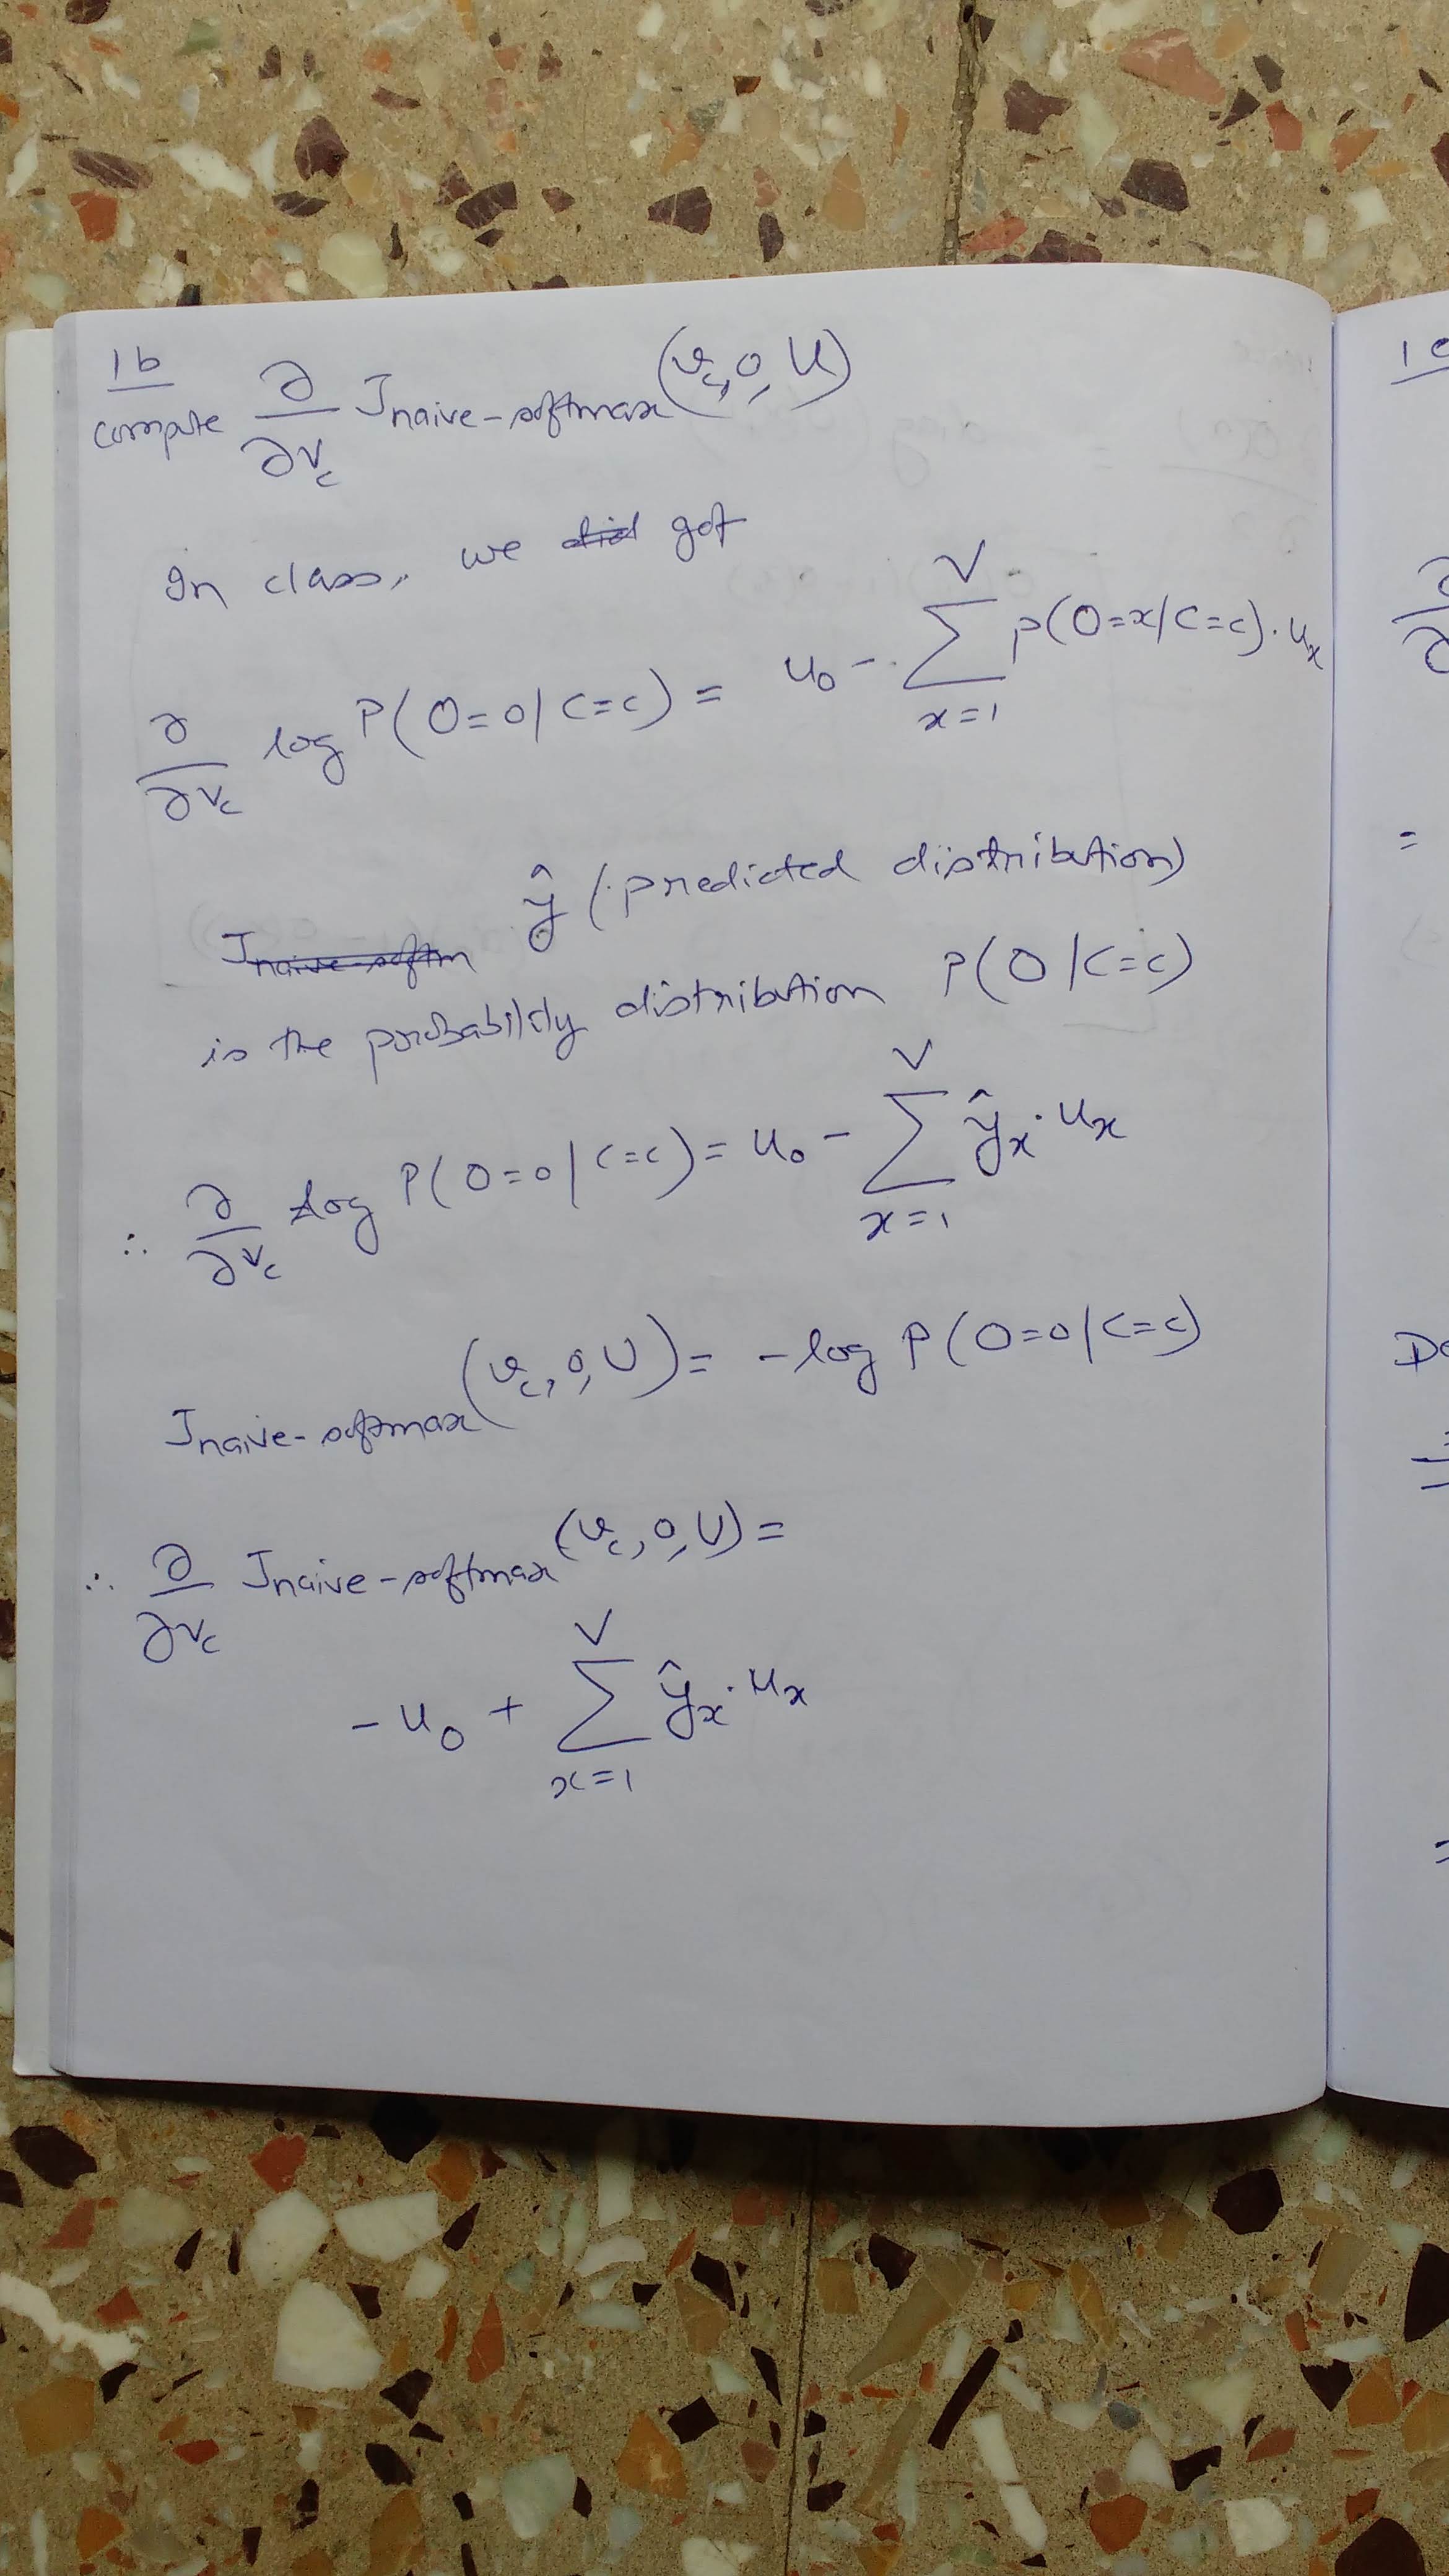 1b
compute ∂/∂v_c J_naive-softmax (v_c, o, U)
In class, we did got
∂/∂v_c log P(O=o|C=c) = u_o - Σ_{x=1}^{V} p(O=x|C=c).u_x
J_naive-softm ŷ (predicted distribution)
is the probability distribution P(O|C=c)
∴ ∂/∂v_c log P(O=o|C=c) = u_o - Σ_{x=1}^{V} ŷ_x.u_x
J_naive-softmax (v_c, o, U) = -log P(O=o|C=c)
∴ ∂/∂v_c J_naive-softmax (v_c, o, U) =
-u_o + Σ_{x=1}^{V} ŷ_x.u_x